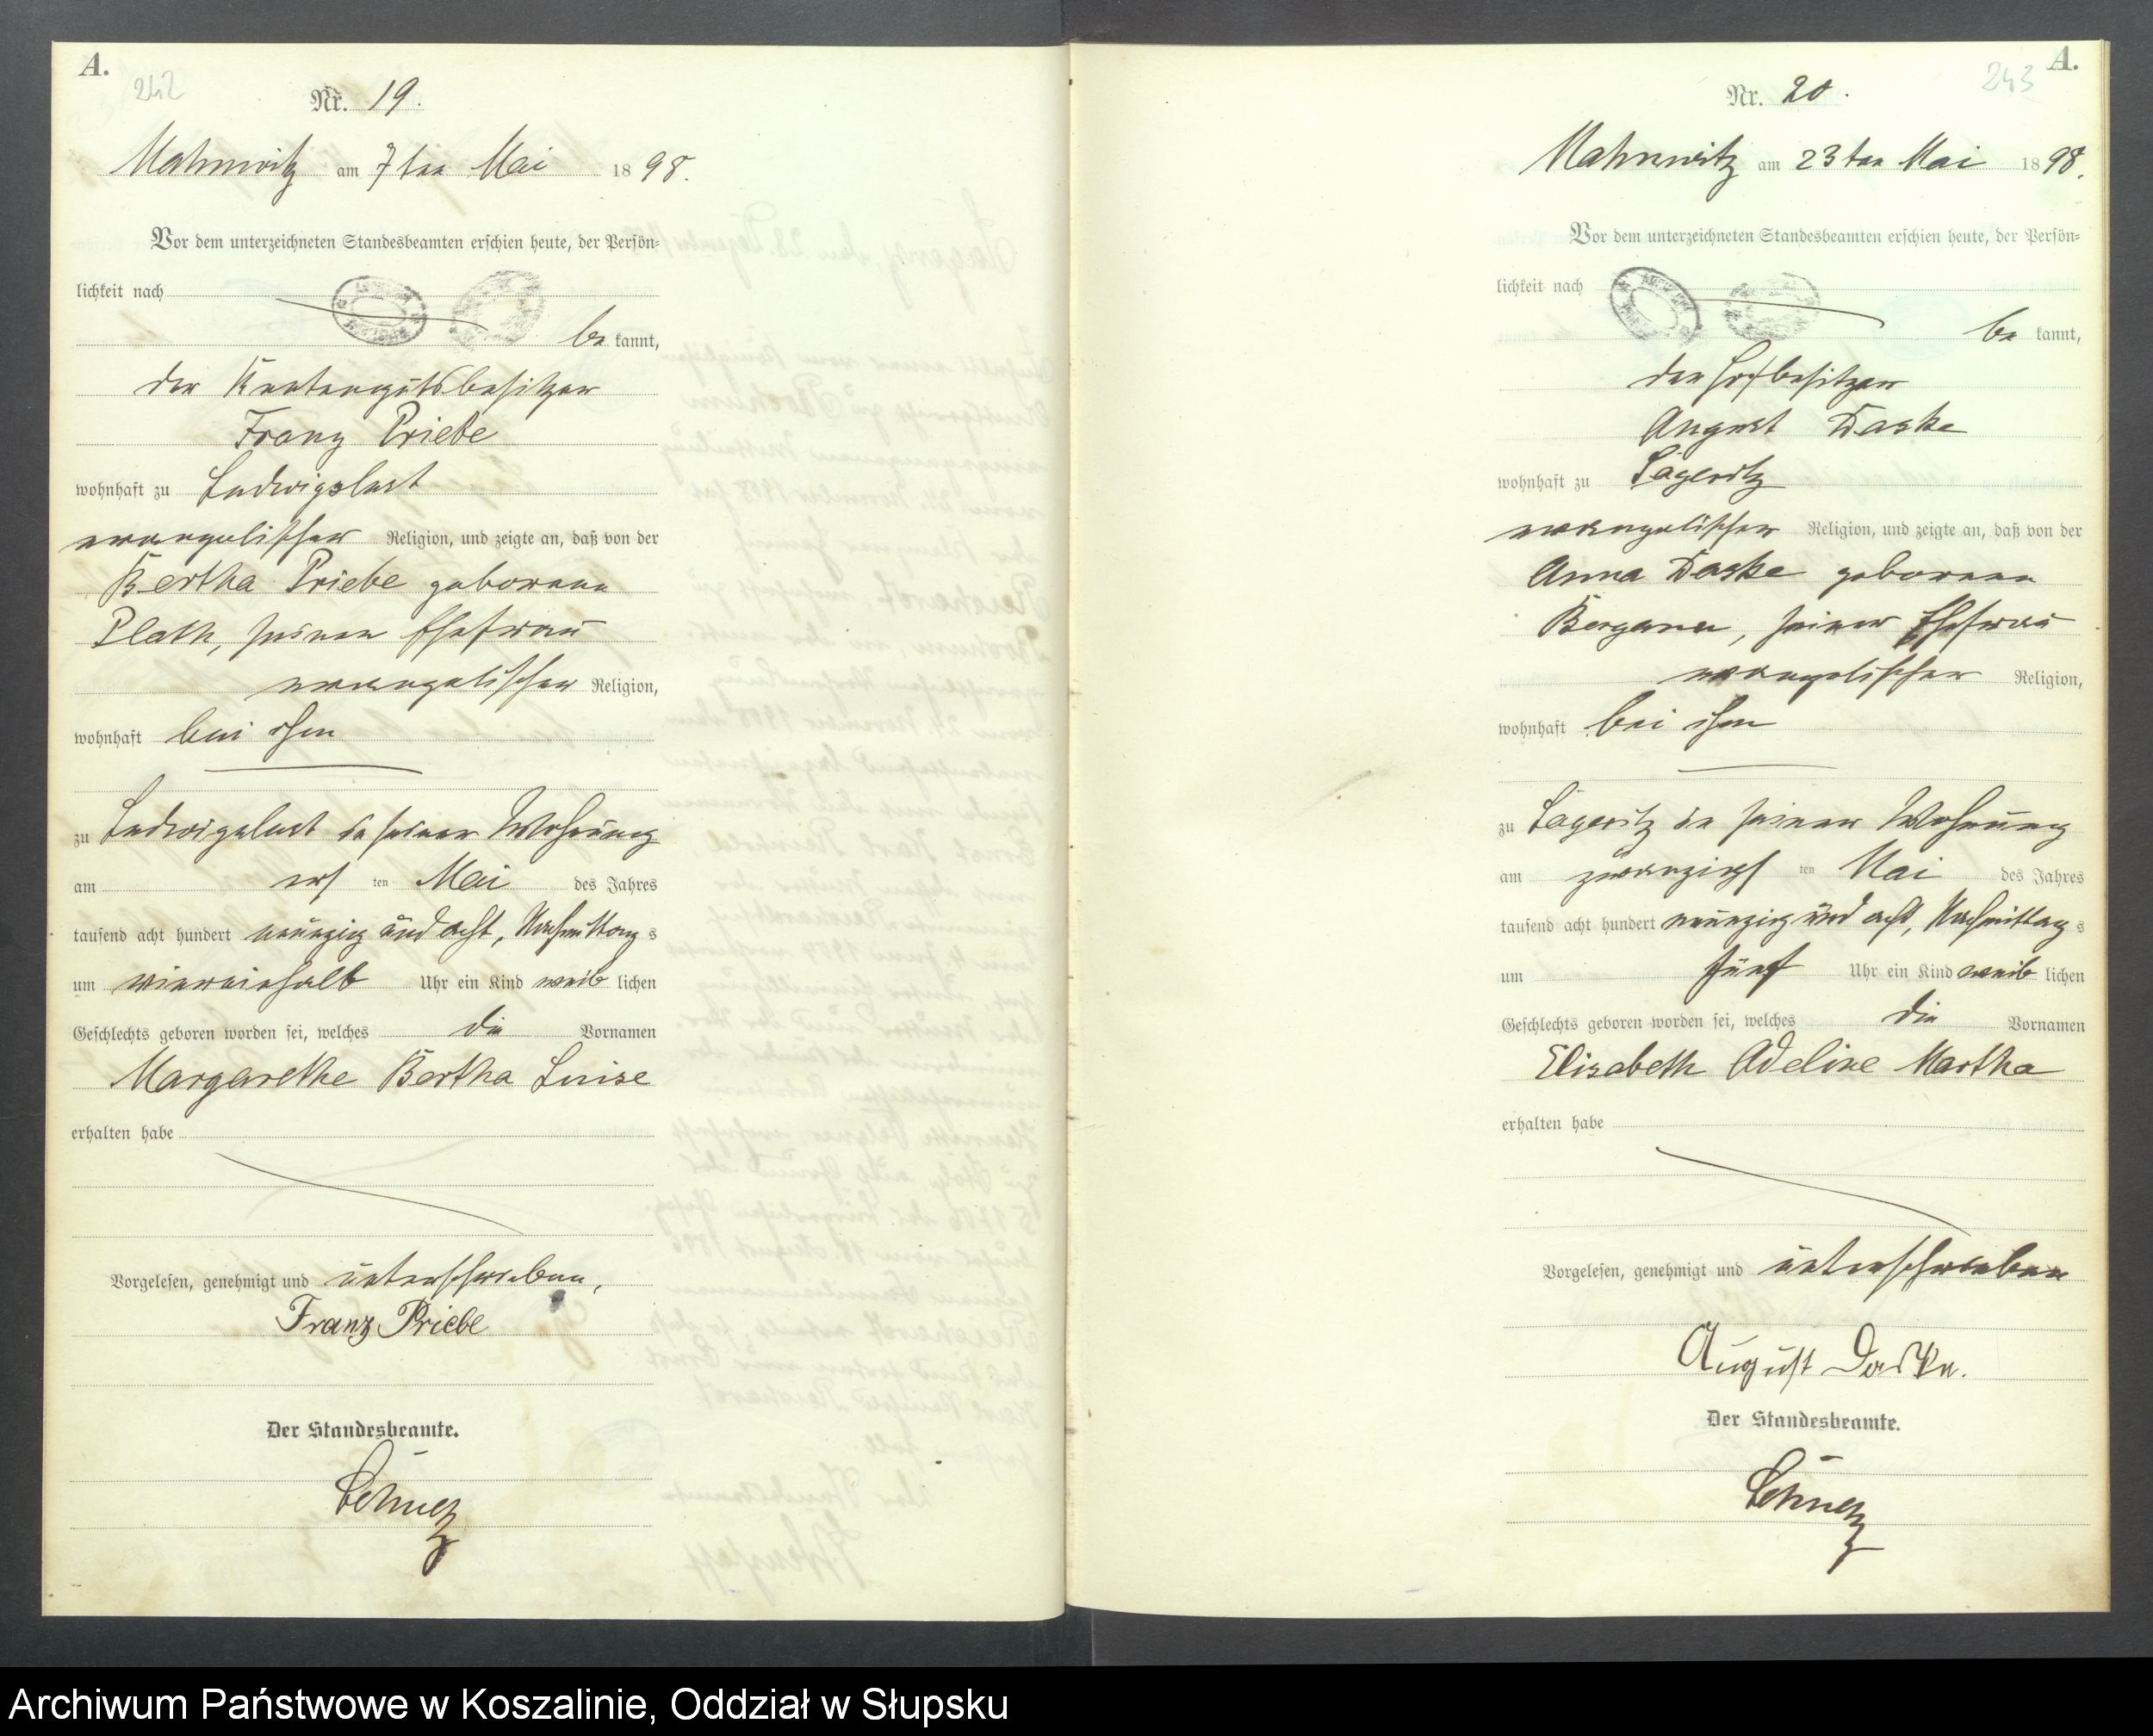 A.
242
Nr. 19.
Mahnwitz am 7ten Mai 1898.
Vor dem unterzeichneten Standesbeamten erschien heute, der Persön-
lichkeit nach
be kannt,
der Rentengutsbesitzer
Franz Priebe
wohnhaft zu Ludwigslust
evangelischer Religion, und zeigte an, daß von der
Bertha Priebe geborene
Plath, seiner Ehefrau
evangelischer Religion,
wohnhaft bei ihm
zu Ludwigslust in seiner Wohnung
am ten Mai des Jahres
tausend acht hundert neunzig und acht, Nachmittag s
um viereinhalb Uhr ein Kind weib lichen
Geschlechts geboren worden sei, welches die Vornamen
Margarethe Bertha Luise
erhalten habe
Vorgelesen, genehmigt und unterschrieben,
Franz Priebe
Der Standesbeamte.
A.
243
Nr. 20.
Mahnwitz am 23ten Mai 1898.
Vor dem unterzeichneten Standesbeamten erschien heute, der Persön-
lichkeit nach
be kannt,
der Hofbesitzer
August Daske
wohnhaft zu Lägeritz
evangelischer Religion, und zeigte an, daß von der
Anna Daske geborene
seiner Ehefrau
evangelischer Religion,
wohnhaft bei ihm
zu Lägeritz in seiner Wohnung
am zwanzigs ten Mai des Jahres
tausend acht hundert neunzig und acht, Nachmittag s
um fünf Uhr ein Kind weib lichen
Geschlechts geboren worden sei, welches die Vornamen
Elisabeth Adeline Martha
erhalten habe
Vorgelesen, genehmigt und unterschrieben
August Daske.
Der Standesbeamte.
Archiwum Państwowe w Koszalinie, Oddział w Słupsku